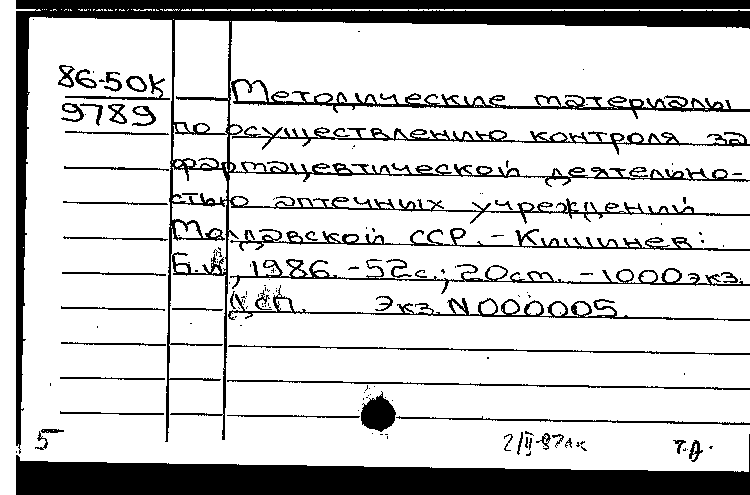 86-50К
9789
Методические материалы
по осуществлению контроля за
фармацевтической деятельно-
стью аптечных учреждений
Молдавской ССР.-Кишинев:
Б.и., 1986.-52с.; 20см. -1000экз.
ДСП. Экз.N000005.
5 2/II-87лк Т.Д.